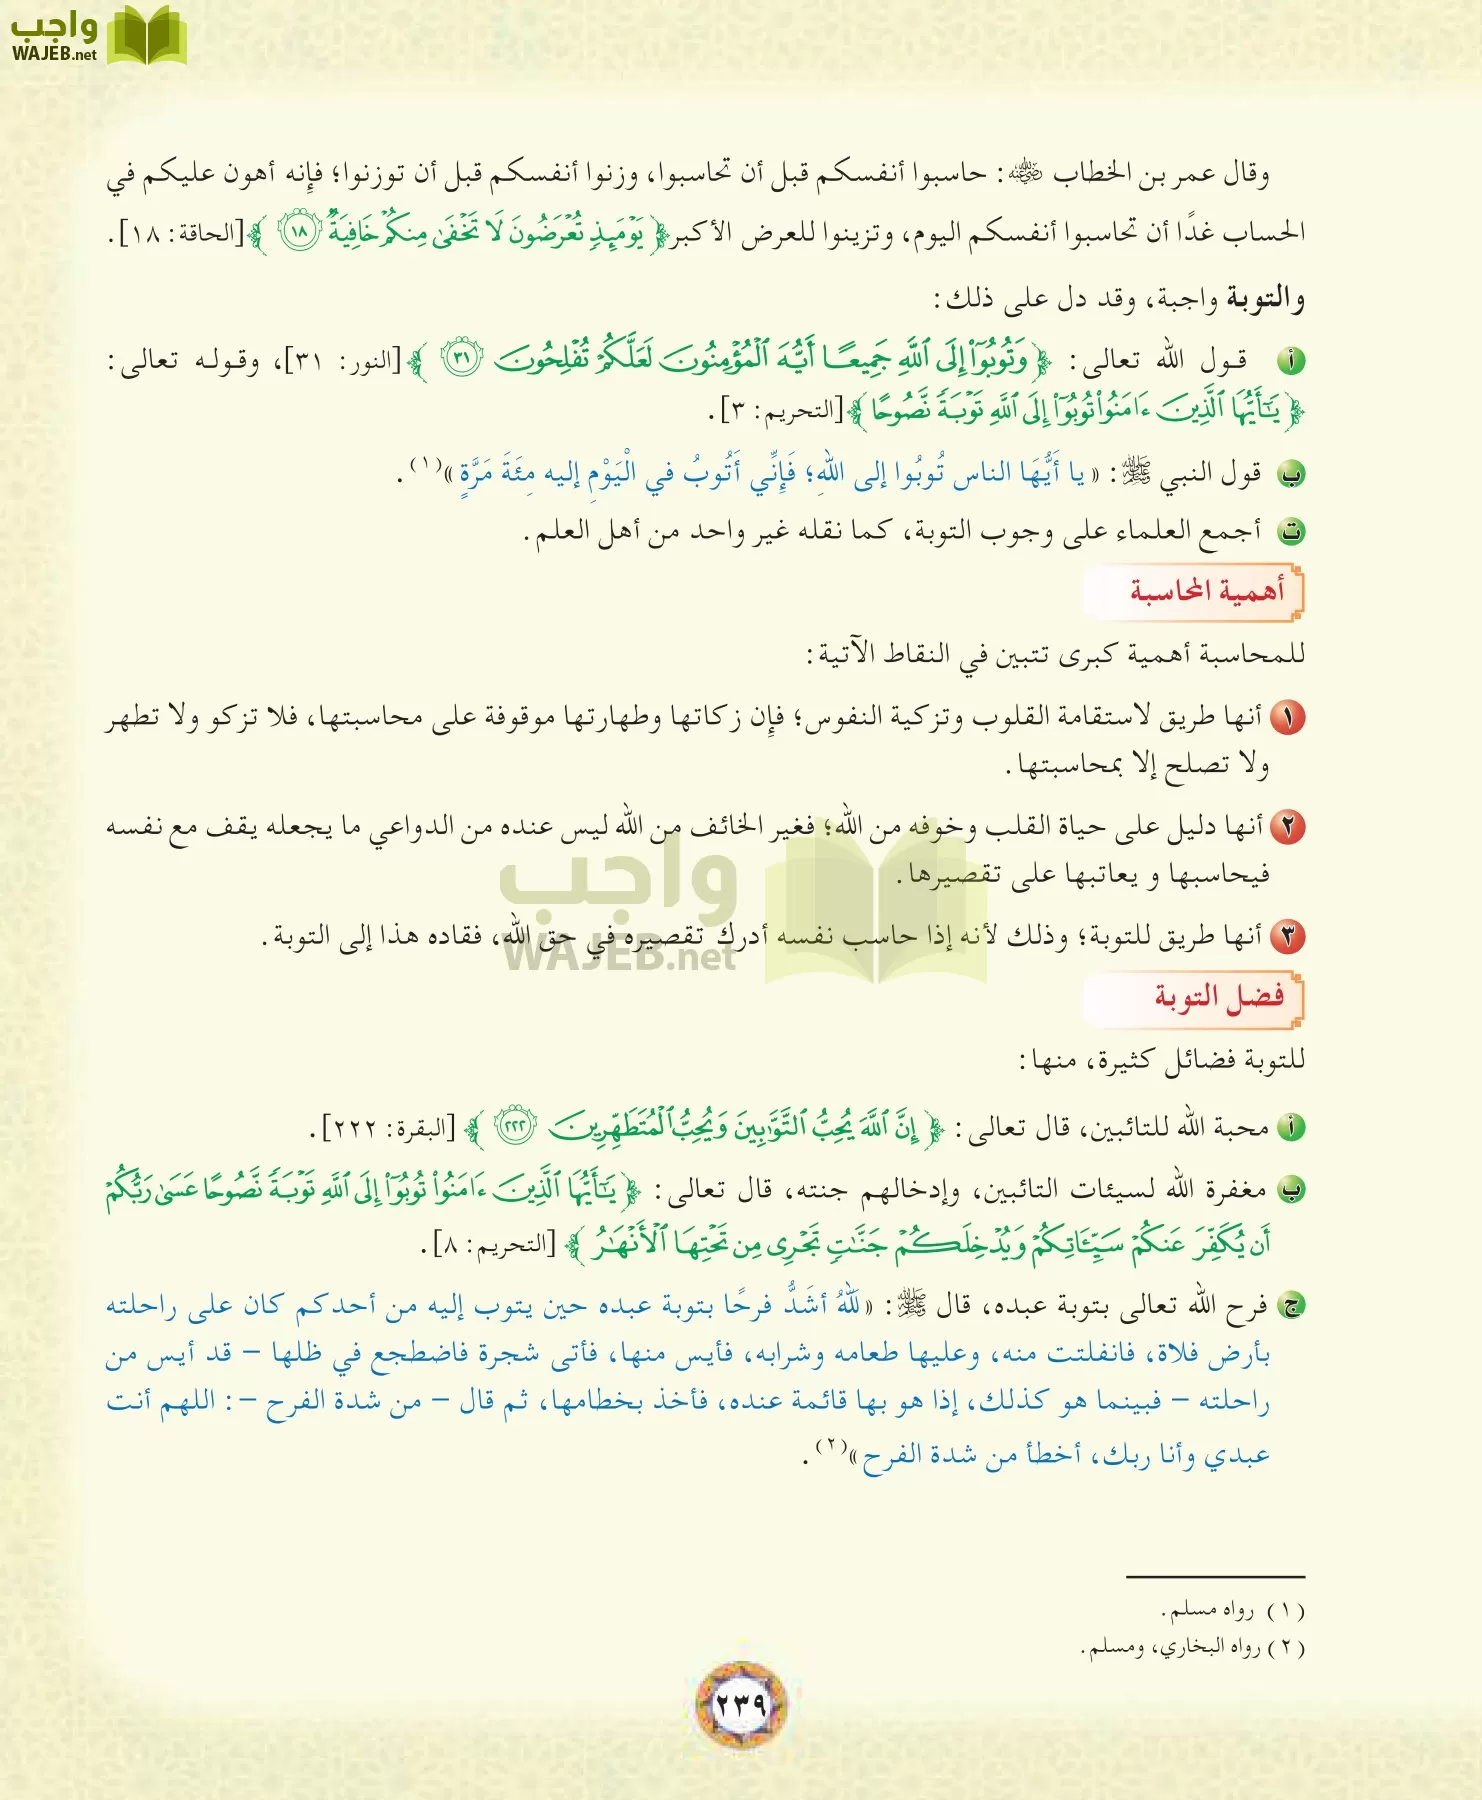 واجب
WAJEB.net
وقال عمر بن الخطاب ﵁: حاسبوا أنفسكم قبل أن تحاسبوا، وزنوا أنفسكم قبل أن توزنوا؛ فإنه أهون عليكم في
الحساب غدًا أن تحاسبوا أنفسكم اليوم، وتزينوا للعرض الأكبر ﴿ يَوْمَئِذٍ تُعْرَضُونَ لَا تَخْفَىٰ مِنكُمْ خَافِيَةٌ ١٨ ﴾ [الحاقة: ١٨].
والتوبة واجبة، وقد دل على ذلك:
أ قول الله تعالى: ﴿ وَتُوبُوٓا۟ إِلَى ٱللَّهِ جَمِيعًا أَيُّهَ ٱلْمُؤْمِنُونَ لَعَلَّكُمْ تُفْلِحُونَ ٣١ ﴾ [النور: ٣١]، وقوله تعالى:
﴿ يَـٰٓأَيُّهَا ٱلَّذِينَ ءَامَنُوا۟ تُوبُوٓا۟ إِلَى ٱللَّهِ تَوْبَةً نَّصُوحًا ﴾ [التحريم: ٣].
ب قول النبي ﷺ: « يا أَيُّهَا الناس تُوبُوا إلى اللهِ؛ فَإِنِّي أَتُوبُ في الْيَوْمِ إليه مِئَةَ مَرَّةٍ »(١).
ت أجمع العلماء على وجوب التوبة، كما نقله غير واحد من أهل العلم.
أهمية المحاسبة
للمحاسبة أهمية كبرى تتبين في النقاط الآتية:
١ أنها طريق لاستقامة القلوب وتزكية النفوس؛ فإن زكاتها وطهارتها موقوفة على محاسبتها، فلا تزكو ولا تطهر
ولا تصلح إلا بمحاسبتها.
٢ أنها دليل على حياة القلب وخوفه من الله؛ فغير الخائف من الله ليس عنده من الدواعي ما يجعله يقف مع نفسه
فيحاسبها و يعاتبها على تقصيرها.
واجب
٣ أنها طريق للتوبة؛ وذلك لأنه إذا حاسب نفسه أدرك تقصيره في حق الله، فقاده هذا إلى التوبة.
WAJEB.net
فضل التوبة
للتوبة فضائل كثيرة، منها:
أ محبة الله للتائبين، قال تعالى: ﴿ إِنَّ ٱللَّهَ يُحِبُّ ٱلتَّوَّٰبِينَ وَيُحِبُّ ٱلْمُتَطَهِّرِينَ ٢٢٢ ﴾ [البقرة: ٢٢٢].
ب مغفرة الله لسيئات التائبين، وإدخالهم جنته، قال تعالى: ﴿ يَـٰٓأَيُّهَا ٱلَّذِينَ ءَامَنُوا۟ تُوبُوٓا۟ إِلَى ٱللَّهِ تَوْبَةً نَّصُوحًا عَسَىٰ رَبُّكُمْ
أَن يُكَفِّرَ عَنكُمْ سَيِّـَٔاتِكُمْ وَيُدْخِلَكُمْ جَنَّـٰتٍ تَجْرِى مِن تَحْتِهَا ٱلْأَنْهَـٰرُ ﴾ [التحريم: ٨].
ج فرح الله تعالى بتوبة عبده، قال ﷺ: « لَلّٰهُ أشَدُّ فرحًا بتوبة عبده حين يتوب إليه من أحدكم كان على راحلته
بأرض فلاة، فانفلتت منه، وعليها طعامه وشرابه، فأيس منها، فأتى شجرة فاضطجع في ظلها – قد أيس من
راحلته – فبينما هو كذلك، إذا هو بها قائمة عنده، فأخذ بخطامها، ثم قال – من شدة الفرح –: اللهم أنت
عبدي وأنا ربك، أخطأ من شدة الفرح »(٢).
(١) رواه مسلم.
(٢) رواه البخاري، ومسلم.
٢٣٩